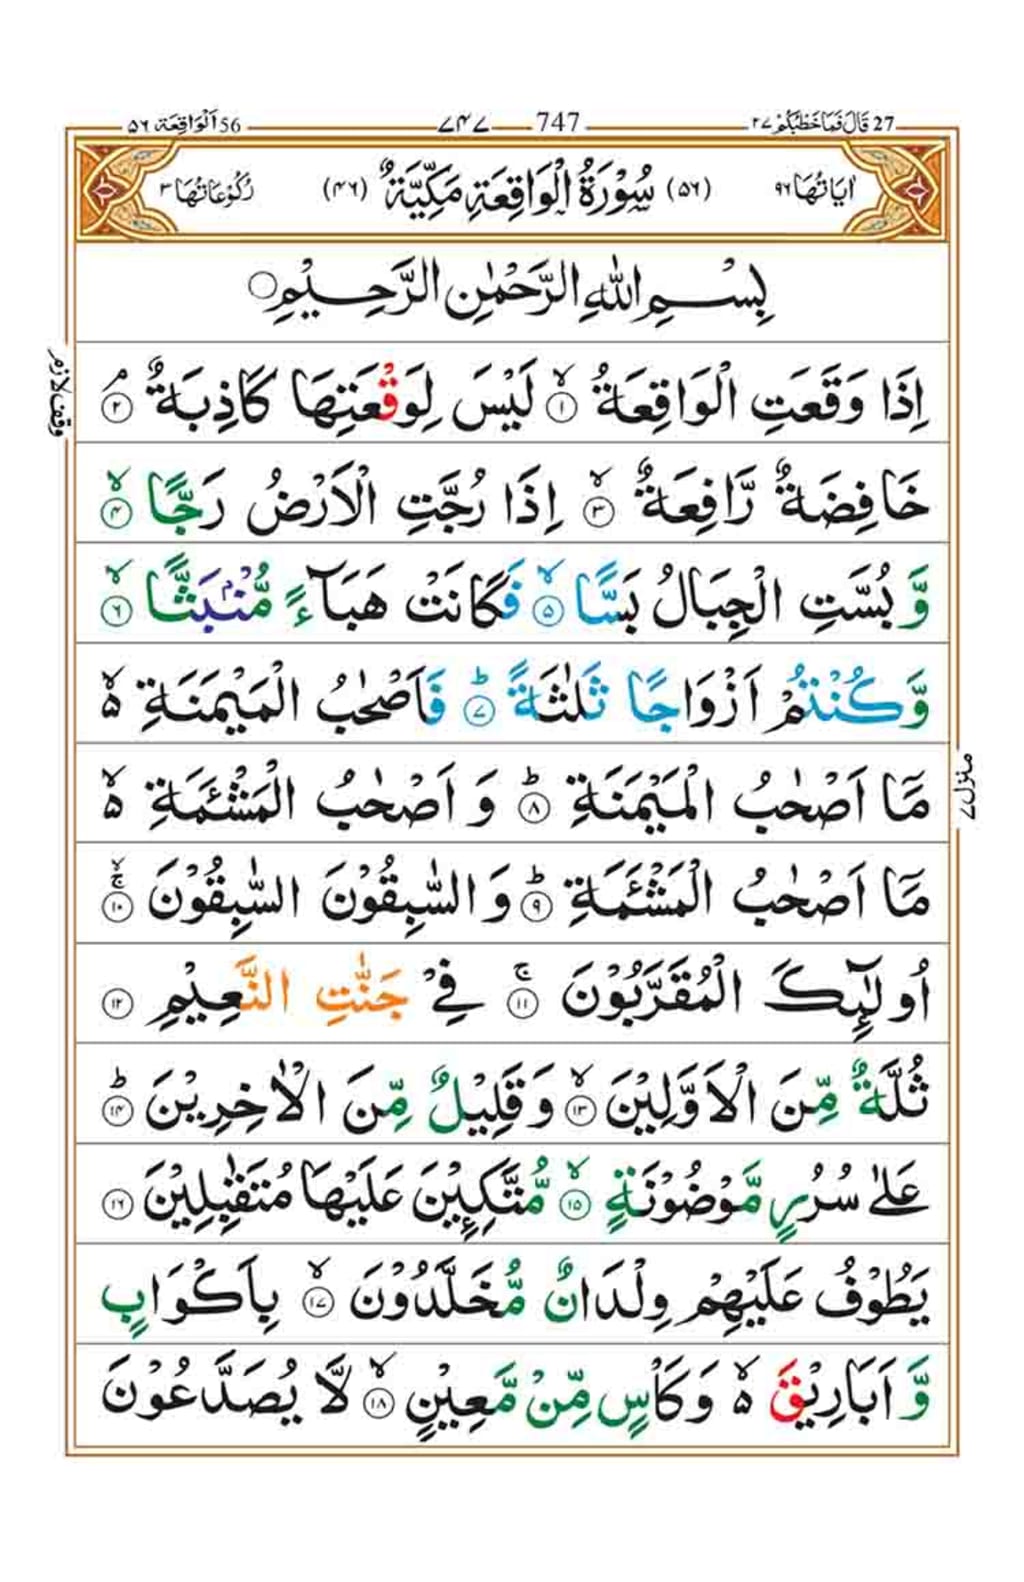 27 قَالَ فَمَا خَطْبُكُمْ ۲۷ 747 ۷۴۷ 56 اَلْوَاقِعَة ۵۶
اٰيَاتُهَا ۹۶ (۵۶) سُوْرَةُ الْوَاقِعَةِ مَكِّيَّةٌ (۴۶) رُكُوْعَاتُهَا ۳
بِسْمِ اللّٰهِ الرَّحْمٰنِ الرَّحِيْمِ ○
اِذَا وَقَعَتِ الْوَاقِعَةُ ۙ﴿۱﴾ لَيْسَ لِوَقْعَتِهَا كَاذِبَةٌ ۘ﴿۲﴾
وقف لازم
خَافِضَةٌ رَّافِعَةٌ ۙ﴿۳﴾ اِذَا رُجَّتِ الْاَرْضُ رَجًّا ۙ﴿۴﴾
وَّ بُسَّتِ الْجِبَالُ بَسًّا ۙ﴿۵﴾ فَكَانَتْ هَبَآءً مُّنْۢبَثًّا ۙ﴿۶﴾
وَّكُنْتُمْ اَزْوَاجًا ثَلٰثَةً ؕ﴿۷﴾ فَاَصْحٰبُ الْمَيْمَنَةِ ۬ۙ
مَاۤ اَصْحٰبُ الْمَيْمَنَةِ ؕ﴿۸﴾ وَ اَصْحٰبُ الْمَشْـَٔمَةِ ۬ۙ
منزل ۷
مَاۤ اَصْحٰبُ الْمَشْـَٔمَةِ ؕ﴿۹﴾ وَ السّٰبِقُوْنَ السّٰبِقُوْنَ ۚۙ﴿۱۰﴾
اُولٰٓئِكَ الْمُقَرَّبُوْنَ ۚ﴿۱۱﴾ فِيْ جَنّٰتِ النَّعِيْمِ ﴿۱۲﴾
ثُلَّةٌ مِّنَ الْاَوَّلِيْنَ ۙ﴿۱۳﴾ وَ قَلِيْلٌ مِّنَ الْاٰخِرِيْنَ ؕ﴿۱۴﴾
عَلٰى سُرُرٍ مَّوْضُوْنَةٍ ۙ﴿۱۵﴾ مُّتَّكِـِٕيْنَ عَلَيْهَا مُتَقٰبِلِيْنَ ﴿۱۶﴾
يَطُوْفُ عَلَيْهِمْ وِلْدَانٌ مُّخَلَّدُوْنَ ۙ﴿۱۷﴾ بِاَكْوَابٍ
وَّ اَبَارِيْقَ ۬ۙ وَكَاْسٍ مِّنْ مَّعِيْنٍ ۙ﴿۱۸﴾ لَّا يُصَدَّعُوْنَ